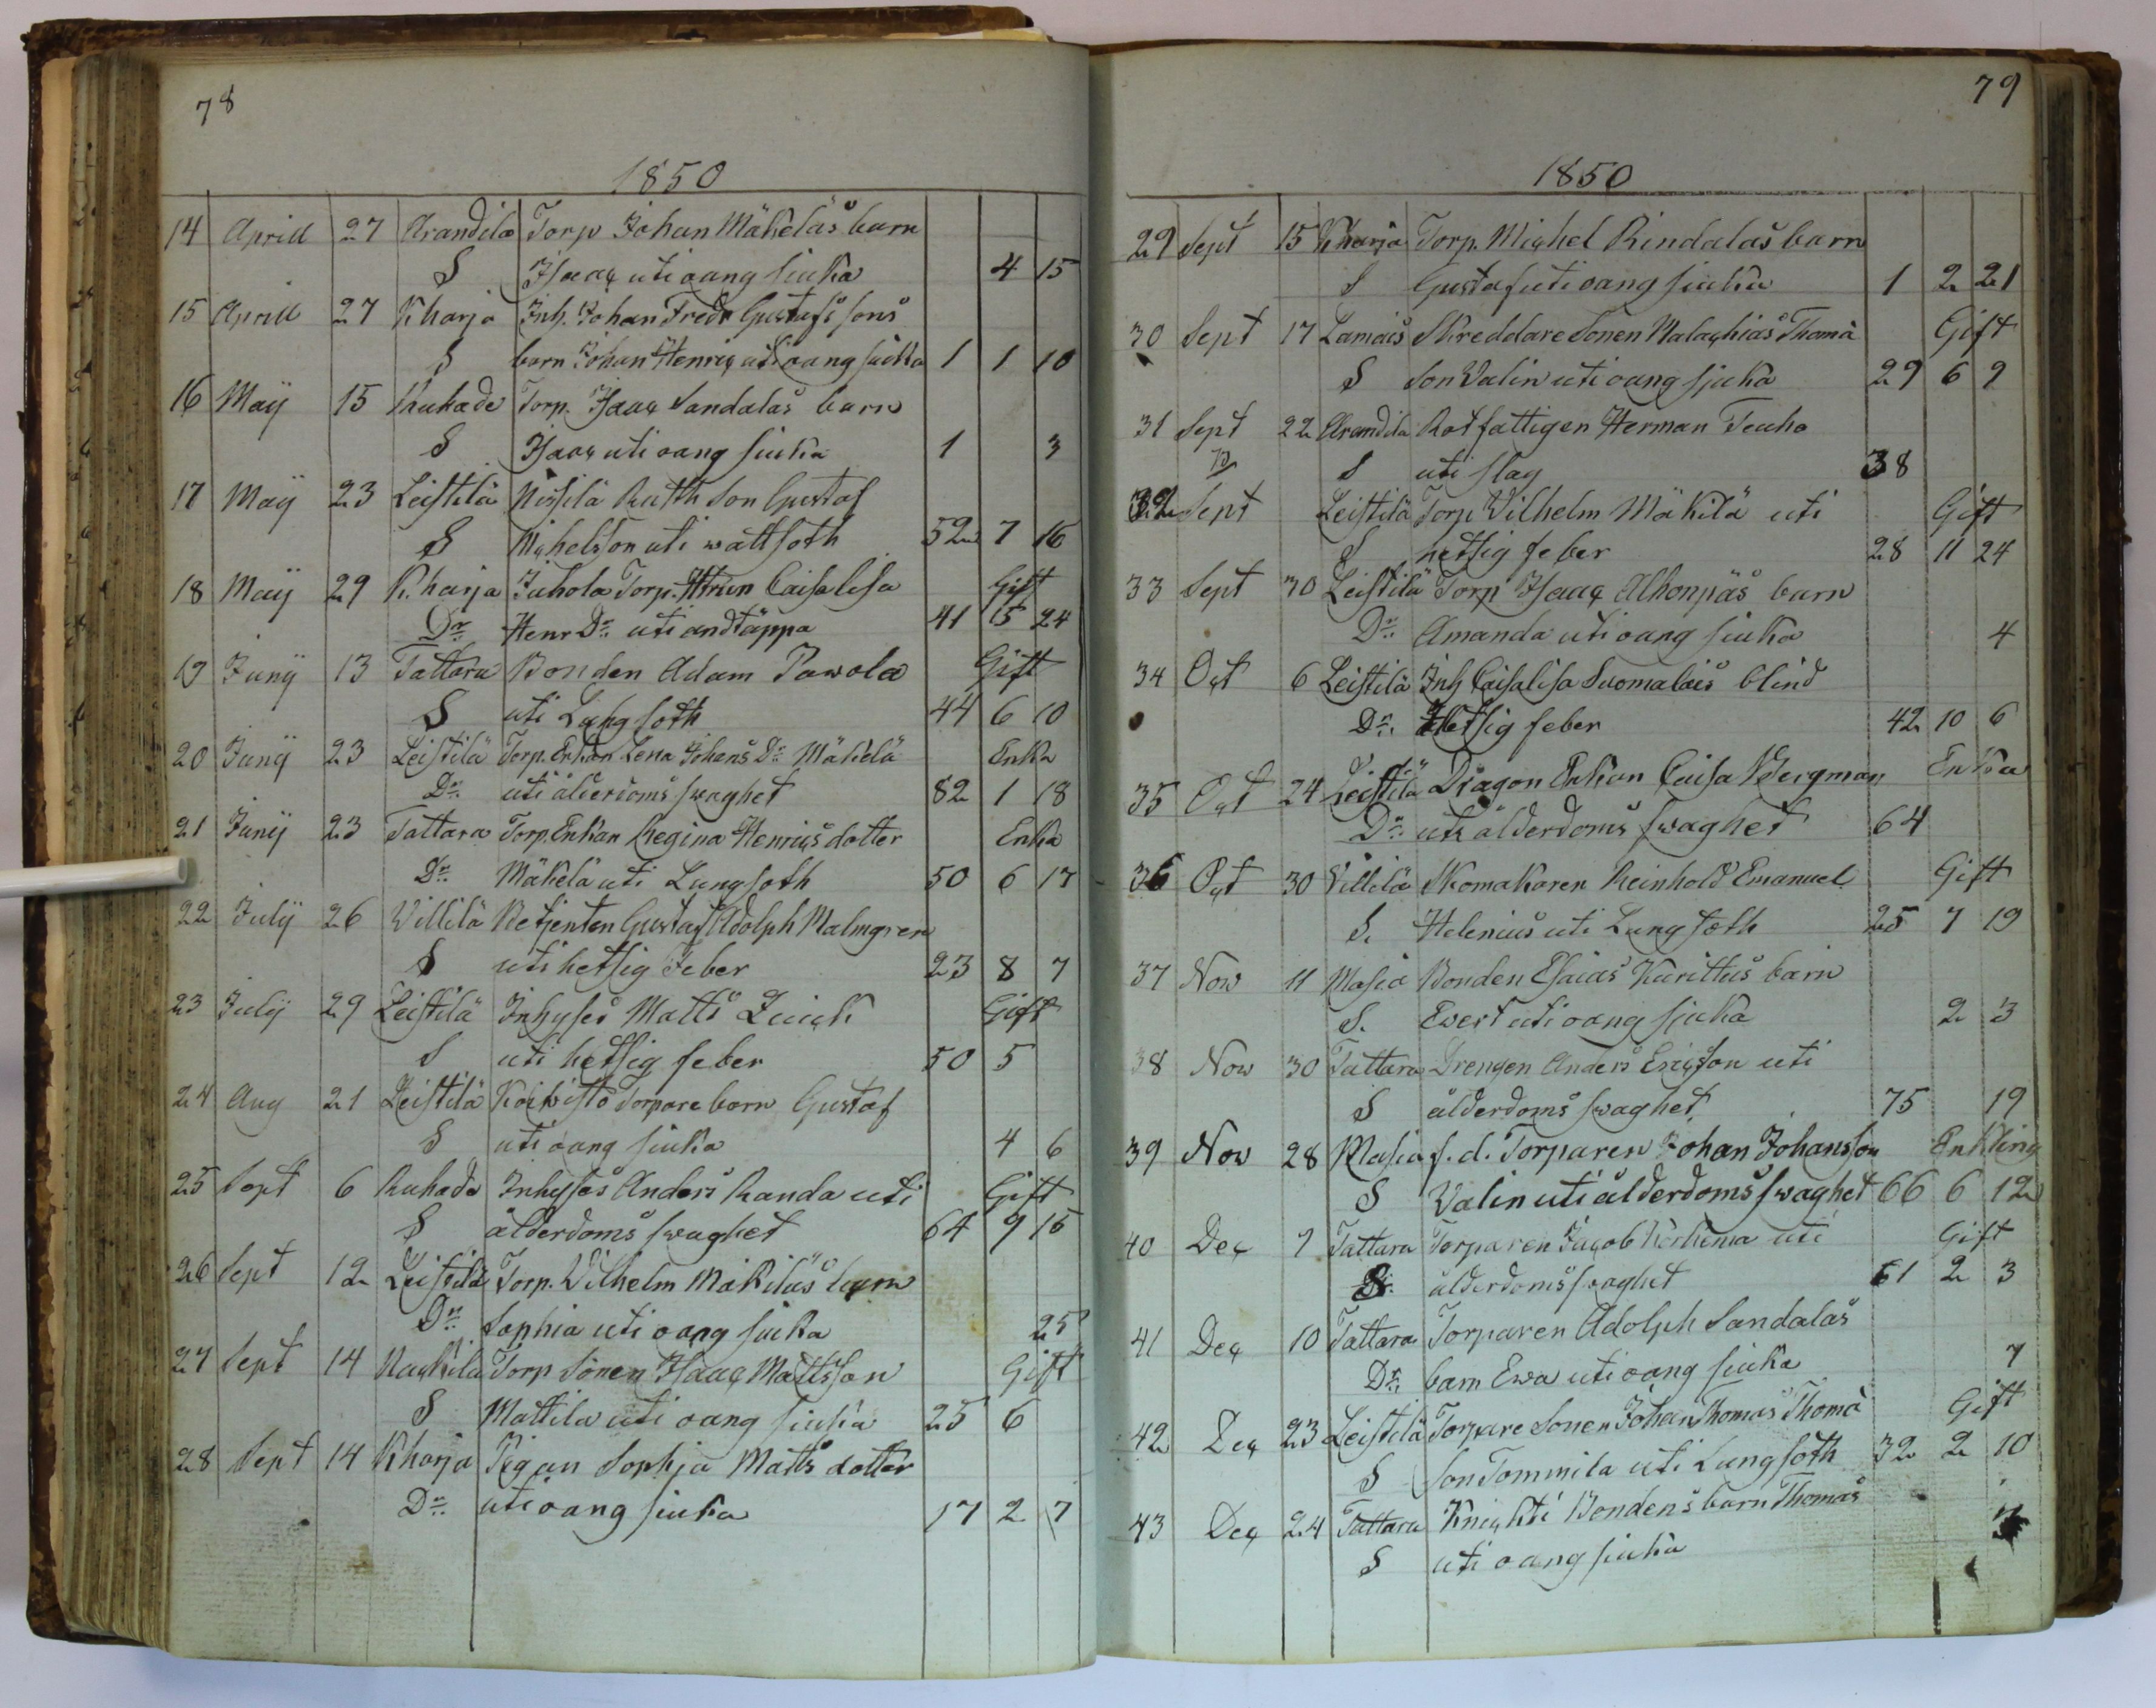 78
1850
14 Aprill 27 Arandila Torp Johan Mäkeläs barn
S Isaac uti oang siuka 4 15
15 Aprill 27 Kharja Inh. Johan Fredr Gustafs sons
S barn Johan Henric uti oang siuka 1 1 10
16 Maij 15 Ruhade Torp. Isaac Sandalas barn
S Isaac uti oang siuka 1 3
17 Maij 23 Leistilä Nissilä Ruth Son Gustaf
S Michelsson uti wattsoth 52 7 16
18 Maij 29 Kharja Juhola Torp. Hstrun Caisalisa Gift
Dr Henr Dr uti andtäppa 41 5 24
19 Junij 13 Tattara Bonden Adam Pawola Gift
S uti Lungsoth 44 6 10
20 Junij 23 Leistilä Torp. Enkan Lena Johans Dr Mäkelä Enka
Dr uti ålderdoms swaghet 82 1 18
21 Junij 23 Tattara Torp. Enkan Regina Henrics dotter Enka
Dr Mäkelä uti Lungsoth 50 6 17
22 Julij 26 Villilä Betjenten Gustaf Adolph Malmgren
S uti hetsig Feber 23 8 7
23 Julij 29 Leistilä Inhyses Matts Gift
S uti hetsig feber 50 5
24 Aug 21 Leistilä Koiwisto Torpare barn Gustaf
S uti oang siuka 4 6
25 Sept 6 Ruhade Inhyses Anders Randa uti Gift
S ålderdoms swaghet 64 9 15
26 Sept 12 Leistilä Torp. Vilhelm Mäkiläs barn
Dr Sophia uti oang siuka 25
27 Sept 14 Torp Sonen Isaac Mattsson Gift
S Mattila uti oang siuka 25 6
28 Sept 14 Kharja Pigan Sophja Matts dotter
Dr uti oang siuka 17 2 7
79
1850
29 Sept 15 Kharja Torp. Michel Rindalas barn
S Gustaf uti oang siuka 1 2 21
30 Sept 17 Lamais Skreddare Sonen Malachias Thomä Gift
S Son Valin uti oang sjuka 29 6 9
31 Sept 22 Arandila Rotfattigen Herman Teuho
S uti slag 38
32 Sept Leistilä Torp Vilhelm Mäkilä uti Gift
S hetsig feber 28 11 24
33 Sept 30 Leistilä Torp Isaac Alhonpäs barn
Dr Amanda uti oang siuka 4
34 Oct 6 Leistilä Inh Caisalisa Suomalais blind
Dr Hetsig feber 42 10 6
35 Oct 24 Leistilä Dragon Enkan Caisa Bergman Enka
Dr uti ålderdoms swaghet 64
36 Oct 30 Villilä Skomakaren Reinhold Emanuel Gift
S. Helenius uti Lungsoth 25 7 19
37 Now 11 Masia Bonden Esaias Kurittus barn
S. Ewert uti oang sjuka 2 3
38 Now 30 Tattara Drengen Anders Ericson uti
S ålderdoms swaghet 75 19
39 Now 28 Masia f. d. Torparen Johan Johansson Enkling
S Valin uti ålderdoms swaghet 66 6 12
40 Dec 7 Tattara Torparen Jacob uti Gift
S. ålderdoms swaghet 61 2 3
41 Dec 10 Tattara Torparen Adolph Sandalas
Dr barn Ewa uti oang siuka 7
42 Dec 23 Leistilä Torpare Sonen Johan Thomas Thomä Gift
S Son Tommila uti Lungsoth 32 2 10
43 Dec 24 Tattara Knickti Bondens barn Thomas
S uti oang siuka